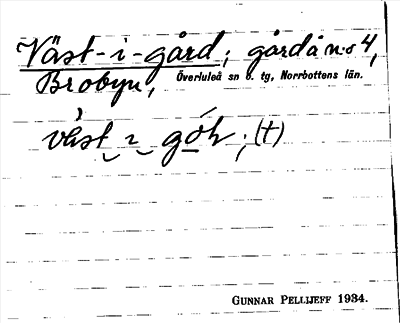 Väst-i-gård; gård å n:o 4,
Brobyn, Överluleå sn ö. tg, Norrbottens län.
väst i
GUNNAR PELLIJEFF 1934.